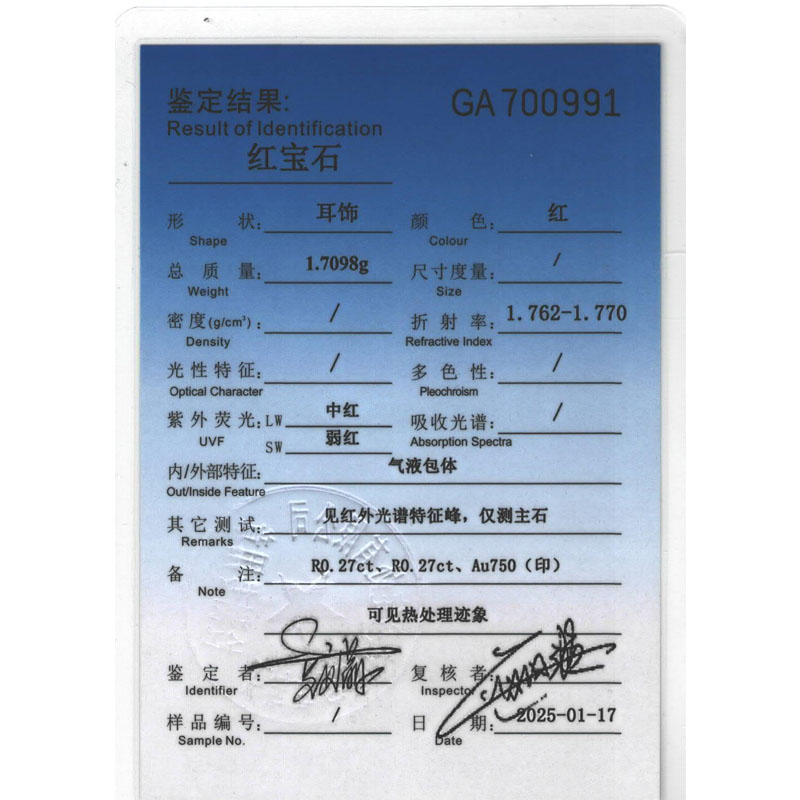 鉴定结果: GA 700991
Result of Identification
红宝石
形状: 耳饰 颜色: 红
Shape Colour
总质量: 1.7098g 尺寸度量: /
Weight Size
密度(g/cm³): / 折射率: 1.762-1.770
Density Refractive Index
光性特征: / 多色性: /
Optical Character Pleochroism
紫外荧光: LW 中红 吸收光谱: /
UVF SW 弱红 Absorption Spectra
内/外部特征: 气液包体
Out/Inside Feature
其它测试: 见红外光谱特征峰，仅测主石
Remarks
备注: R0.27ct、R0.27ct、Au750（印）
Note
可见热处理迹象
鉴定者: 复核者:
Identifier Inspector
样品编号: / 日期: 2025-01-17
Sample No. Date